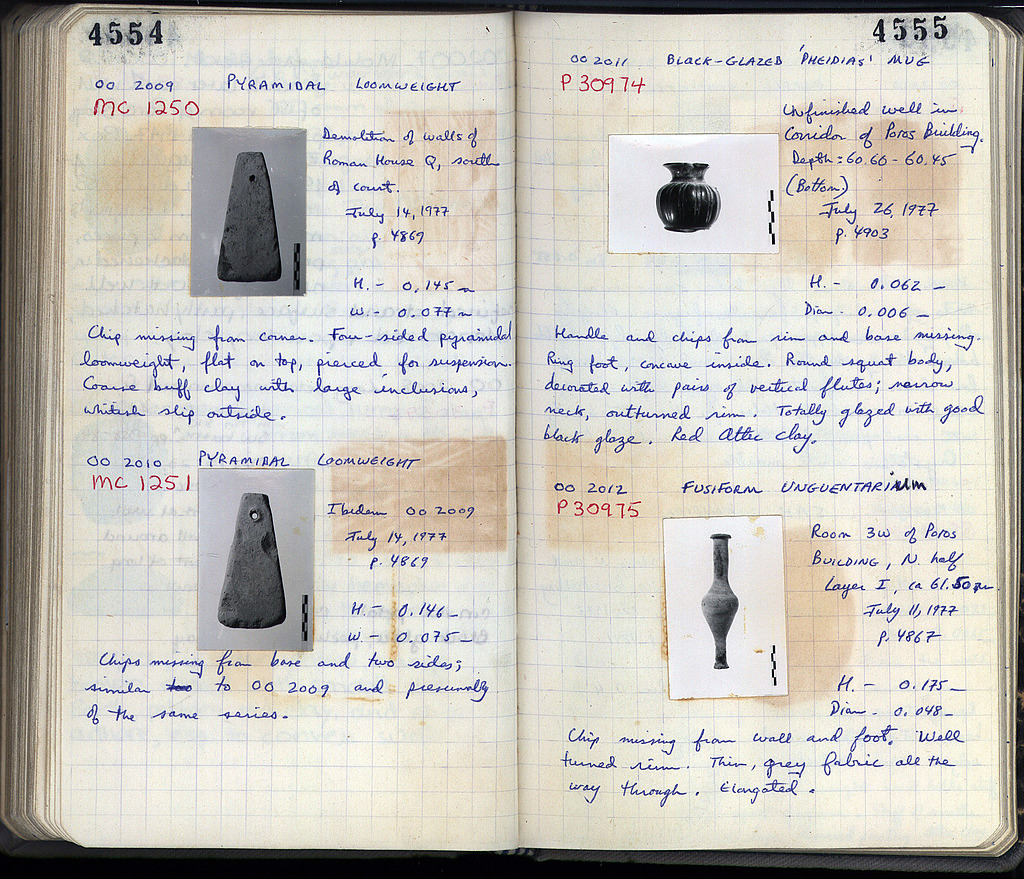 4554
OO 2009 PYRAMIDAL LOOMWEIGHT
MC 1250
Demolition of walls of
Roman House Q, south
of court.
July 14, 1977
p. 4869
H. - 0.145 m
W. - 0.077 m
Chip missing from corner. Four-sided pyramidal
loomweight, flat on top, pierced for suspension.
Coarse buff clay with large inclusions,
whitish slip outside.
OO 2010 PYRAMIDAL LOOMWEIGHT
MC 1251
Ibidem OO 2009
July 14, 1977
p. 4869
H. - 0.146 -
W. - 0.075 -
Chips missing from base and two sides;
similar too to OO 2009 and presumably
of the same series.
4555
OO 2011 BLACK-GLAZED 'PHEIDIAS' MUG
P 30974
Unfinished well in
Corridor of Poros Building.
Depth: 60.60 - 60.45
(Bottom)
July 26, 1977
p. 4903
H. - 0.062 -
Diam. 0.006 -
Handle and chips from rim and base missing.
Ring foot, concave inside. Round squat body,
decorated with pairs of vertical flutes; narrow
neck, outturned rim. Totally glazed with good
black glaze. Red Attic clay.
OO 2012 FUSIFORM UNGUENTARIUM
P 30975
Room 3w of Poros
BUILDING, N. half
Layer I, ca 61.50 m.
July 11, 1977
p. 4867
H. - 0.175 -
Diam - 0.048 -
Chip missing from wall and foot. Well
turned rim. Thin, grey fabric all the
way through. Elongated.